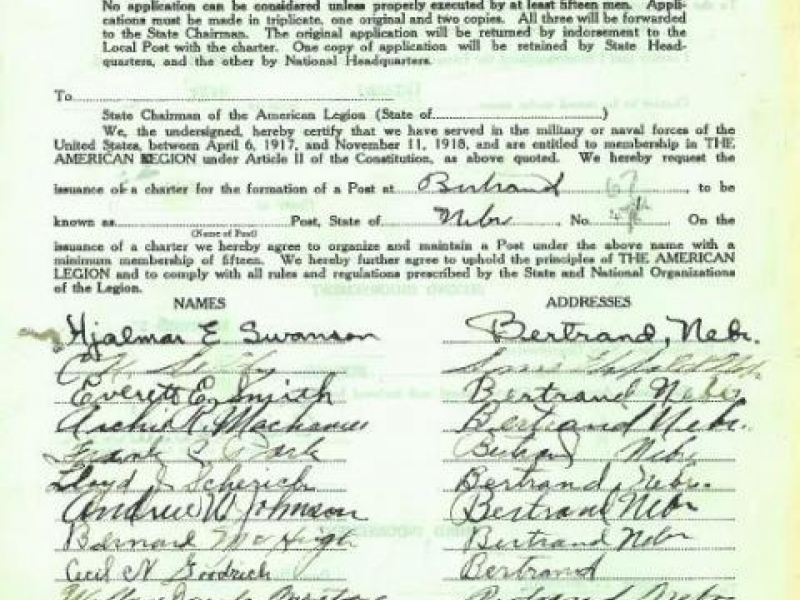 No application can be considered unless properly executed by at least fifteen men. Appli-
cations must be made in triplicate, one original and two copies. All three will be forwarded
to the State Chairman. The original application will be returned by indorsement to the
Local Post with the charter. One copy of application will be retained by State Head-
quarters, and the other by National Headquarters.
To
State Chairman of the American Legion (State of )
We, the undersigned, hereby certify that we have served in the military or naval forces of the
United States, between April 6, 1917, and November 11, 1918, and are entitled to membership in THE
AMERICAN LEGION under Article II of the Constitution, as above quoted. We hereby request the
issuance of a charter for the formation of a Post at Bertrand 67, to be
known as Post, State of Nebr No. On the
(Name of Post)
issuance of a charter we hereby agree to organize and maintain a Post under the above name with a
minimum membership of fifteen. We hereby further agree to uphold the principles of THE AMERICAN
LEGION and to comply with all rules and regulations prescribed by the State and National Organizations
of the Legion.
NAMES ADDRESSES
Hjalmar E Swanson Bertrand, Nebr.
Everett E. Smith Bertrand Nebr
Archie R. Bertrand Nebr.
Frank Bertrand Nebr
Lloyd Scherich Bertrand, Nebr.
Andrew W Johnson Bertrand Nebr
Bernard McHugh Bertrand Nebr
Cecil N Goodrich Bertrand
Bertrand Nebr